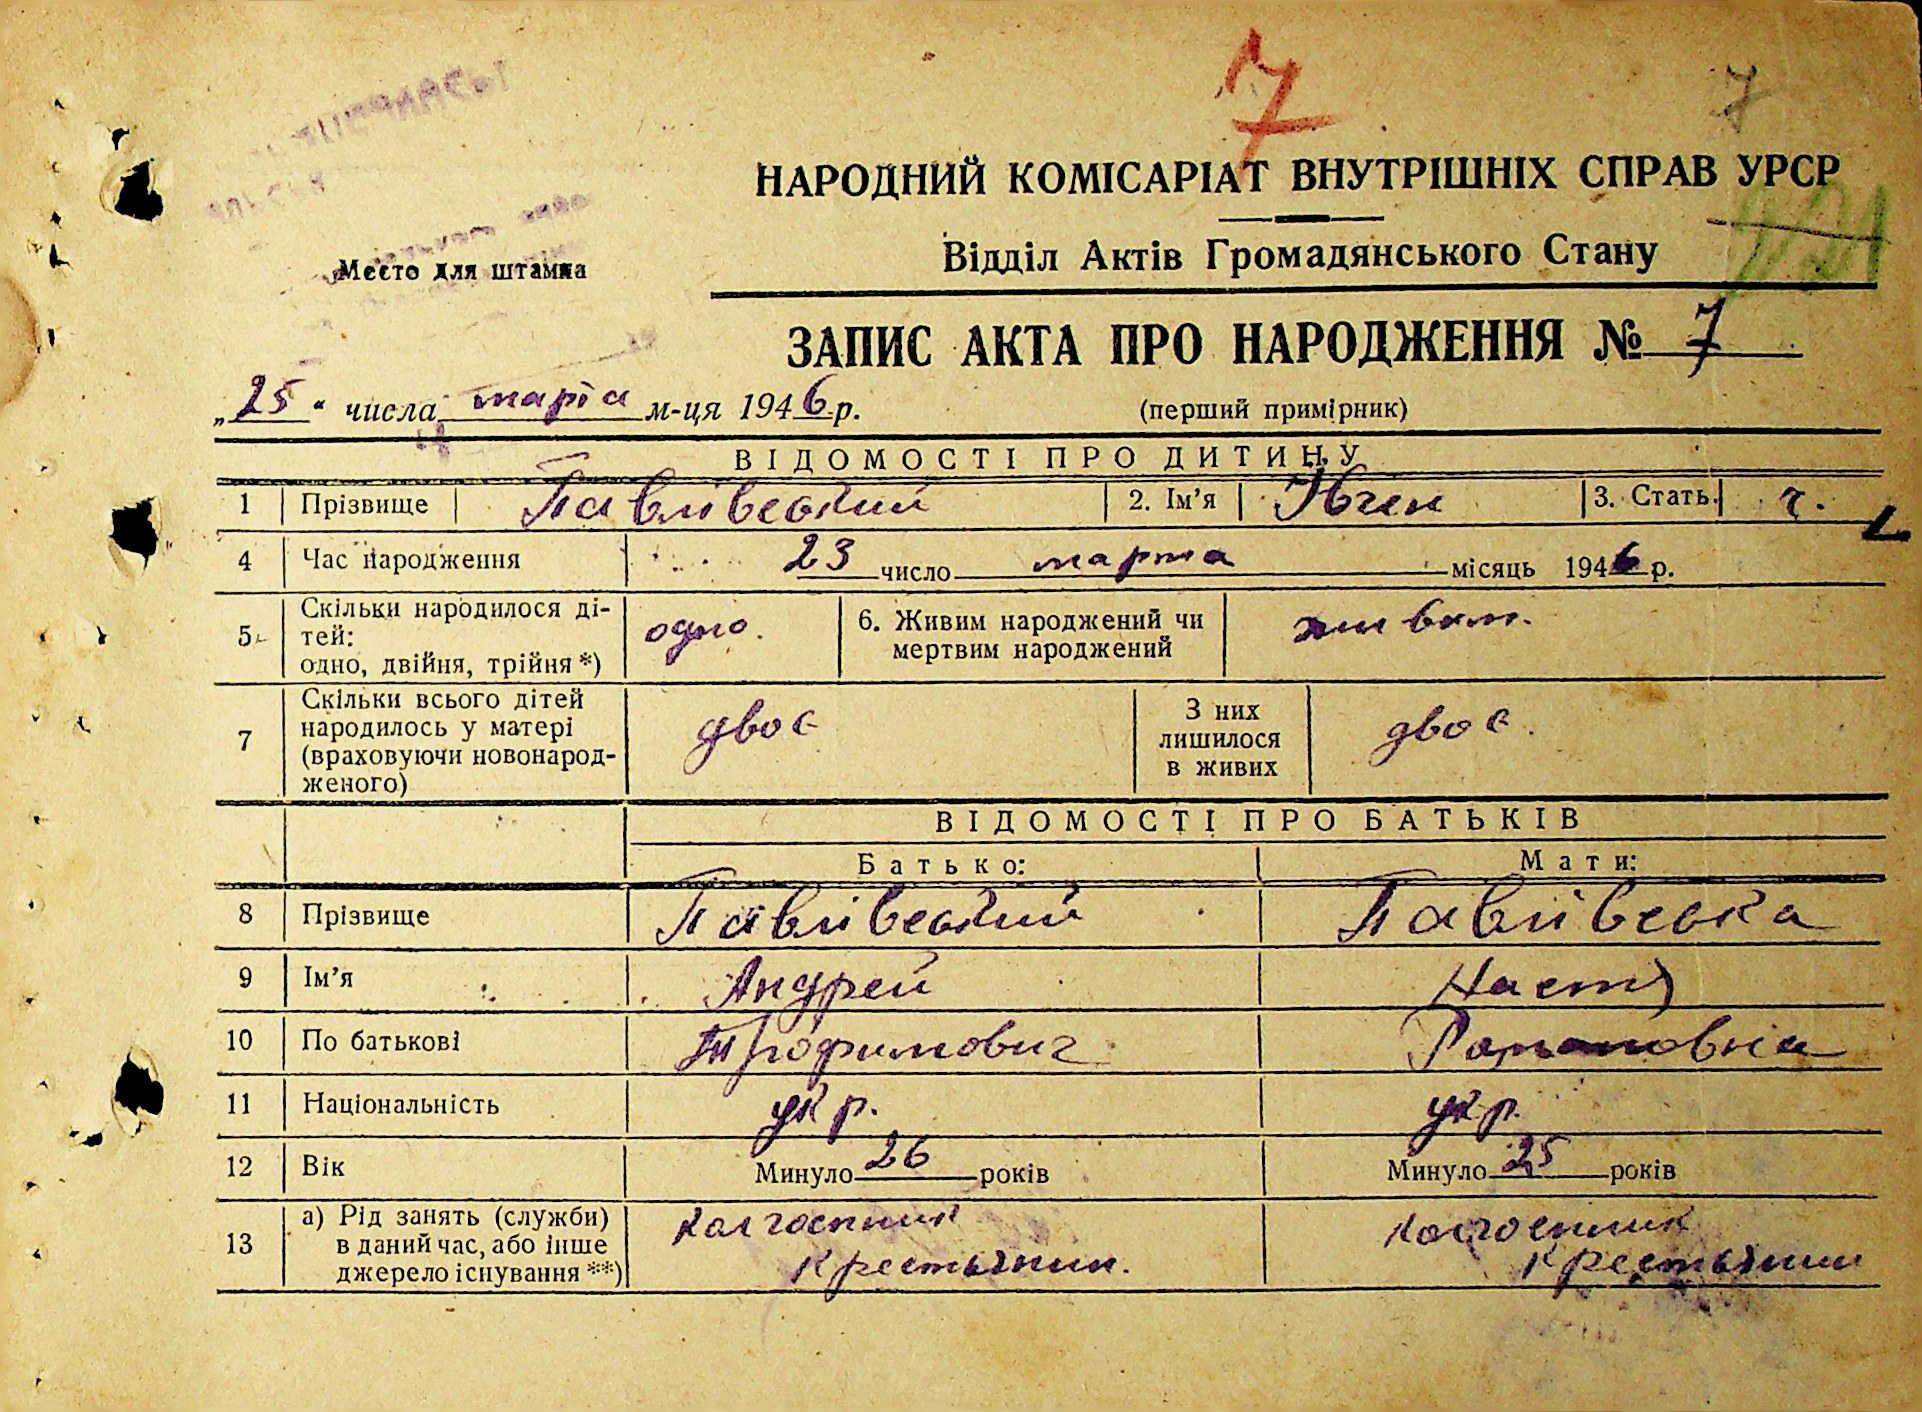 7
7
НАРОДНИЙ КОМІСАРІАТ ВНУТРІШНІХ СПРАВ УРСР
Место для штампа
Відділ Актів Громадянського Стану
ЗАПИС АКТА ПРО НАРОДЖЕННЯ № 7
„25“ числа марта м-ця 1946 р. (перший примірник)
ВІДОМОСТІ ПРО ДИТИНУ
1 Прізвище Павлівський 2. Ім’я Євген 3. Стать ч.
4 Час народження 23 число марта місяць 1946 р.
5 Скільки народилося ді-
тей:
одно, двійня, трійня *) одно. 6. Живим народжений чи
мертвим народжений живим.
7 Скільки всього дітей
народилось у матері
(враховуючи новонарод-
женого) двоє З них
лишилося
в живих двоє.
ВІДОМОСТІ ПРО БАТЬКІВ
Батько: Мати:
8 Прізвище Павлівський Павлівська
9 Ім’я Андрей Настя
10 По батькові Трофимович Романовна
11 Національність укр. укр.
12 Вік Минуло 26 років Минуло 25 років
13 а) Рід занять (служби)
в даний час, або інше
джерело існування **) колгоспник
крестьянин. колгоспник
крестьянин